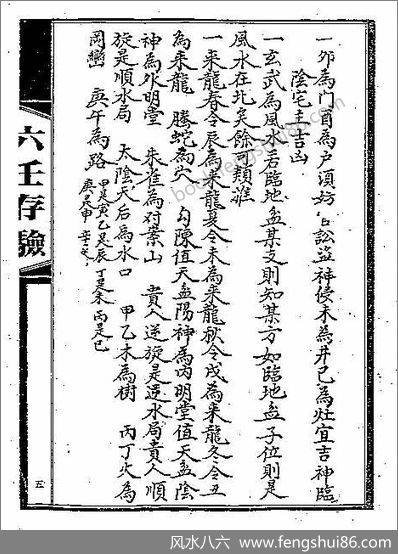 一夘為門酉為户須妨官訟盗神侵未為井巳為灶宜吉神臨
陰宅主吉凶
一玄武為風水若臨地盆某支則知某方如臨地盆子位則是
風水在北矣餘可類推
一來龍春令辰為來龍夏令未為來龍秋令戌為來龍冬令丑
為來龍 螣蛇為穴 勾陳值天盆陽神為內明堂值天盆陰
神為外明堂 朱雀為对案山 貴人逆旋是逆水局貴人順
旋是順水局 太陰天后為水口 甲乙木為樹 丙丁火為
岡巒 庚午為路 甲是寅乙是辰 丁是未 丙是巳
庚是申
六壬存驗
五
风水八六 www.fengshui86.com